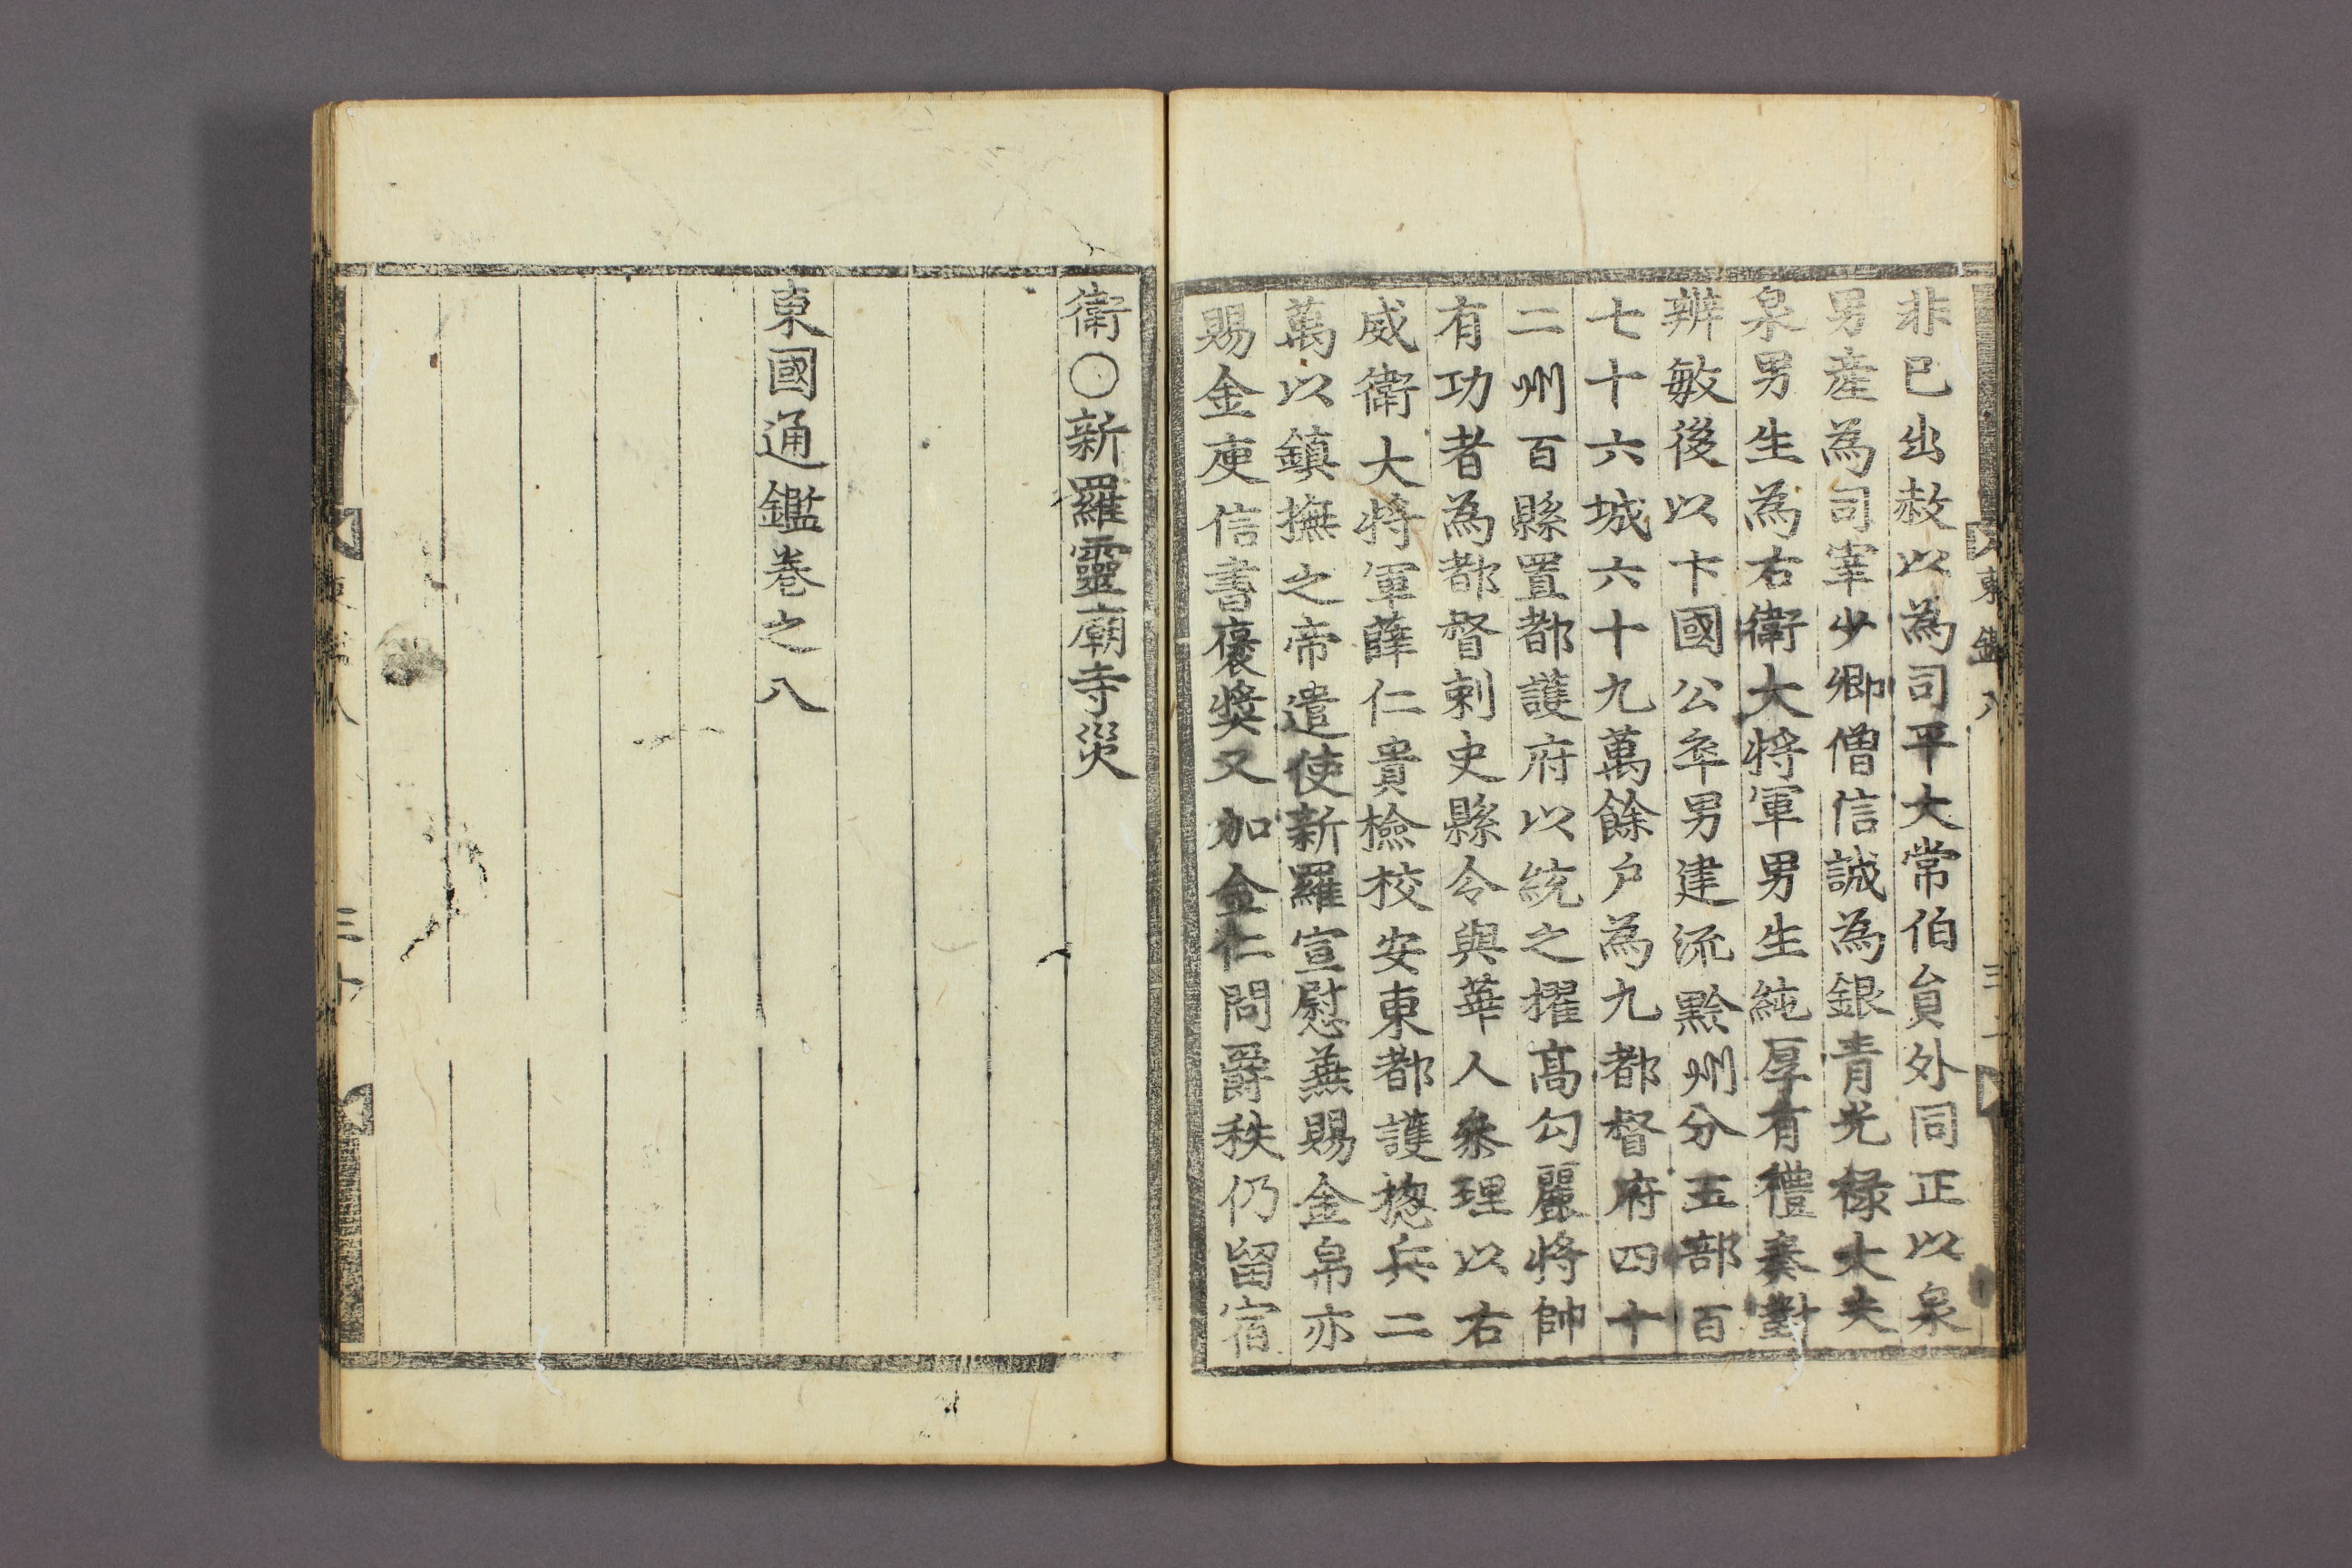 非已出赦以為司平大常伯貟外同正以泉
男產為司宰少卿僧信誠為銀青光祿大夫
泉男生為右衛大將軍男生純厚有禮奏對
辨敏後以卞國公卒男建流黔州分五部百
七十六城六十九萬餘戶為九都督府四十
二州百縣置都護府以統之擢高勾麗將帥
有功者為都督刺史縣令與華人叅理以右
威衛大將軍薛仁貴檢校安東都護摠兵二
萬以鎮撫之帝遣使新羅宣慰兼賜金帛亦
賜金庾信書褒奬又加金仁問爵秩仍留宿
衛○新羅靈廟寺災
東國通鑑卷之八